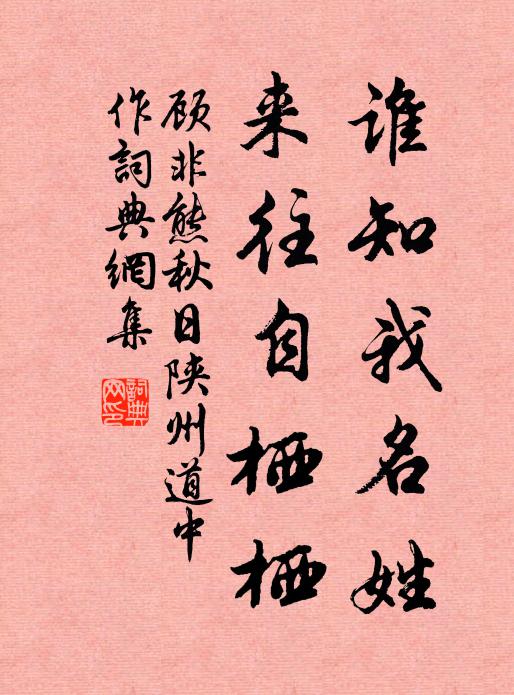 谁知我名姓
来往自栖栖
顾非熊秋日陕州道中
作詞典網集
詞典网印